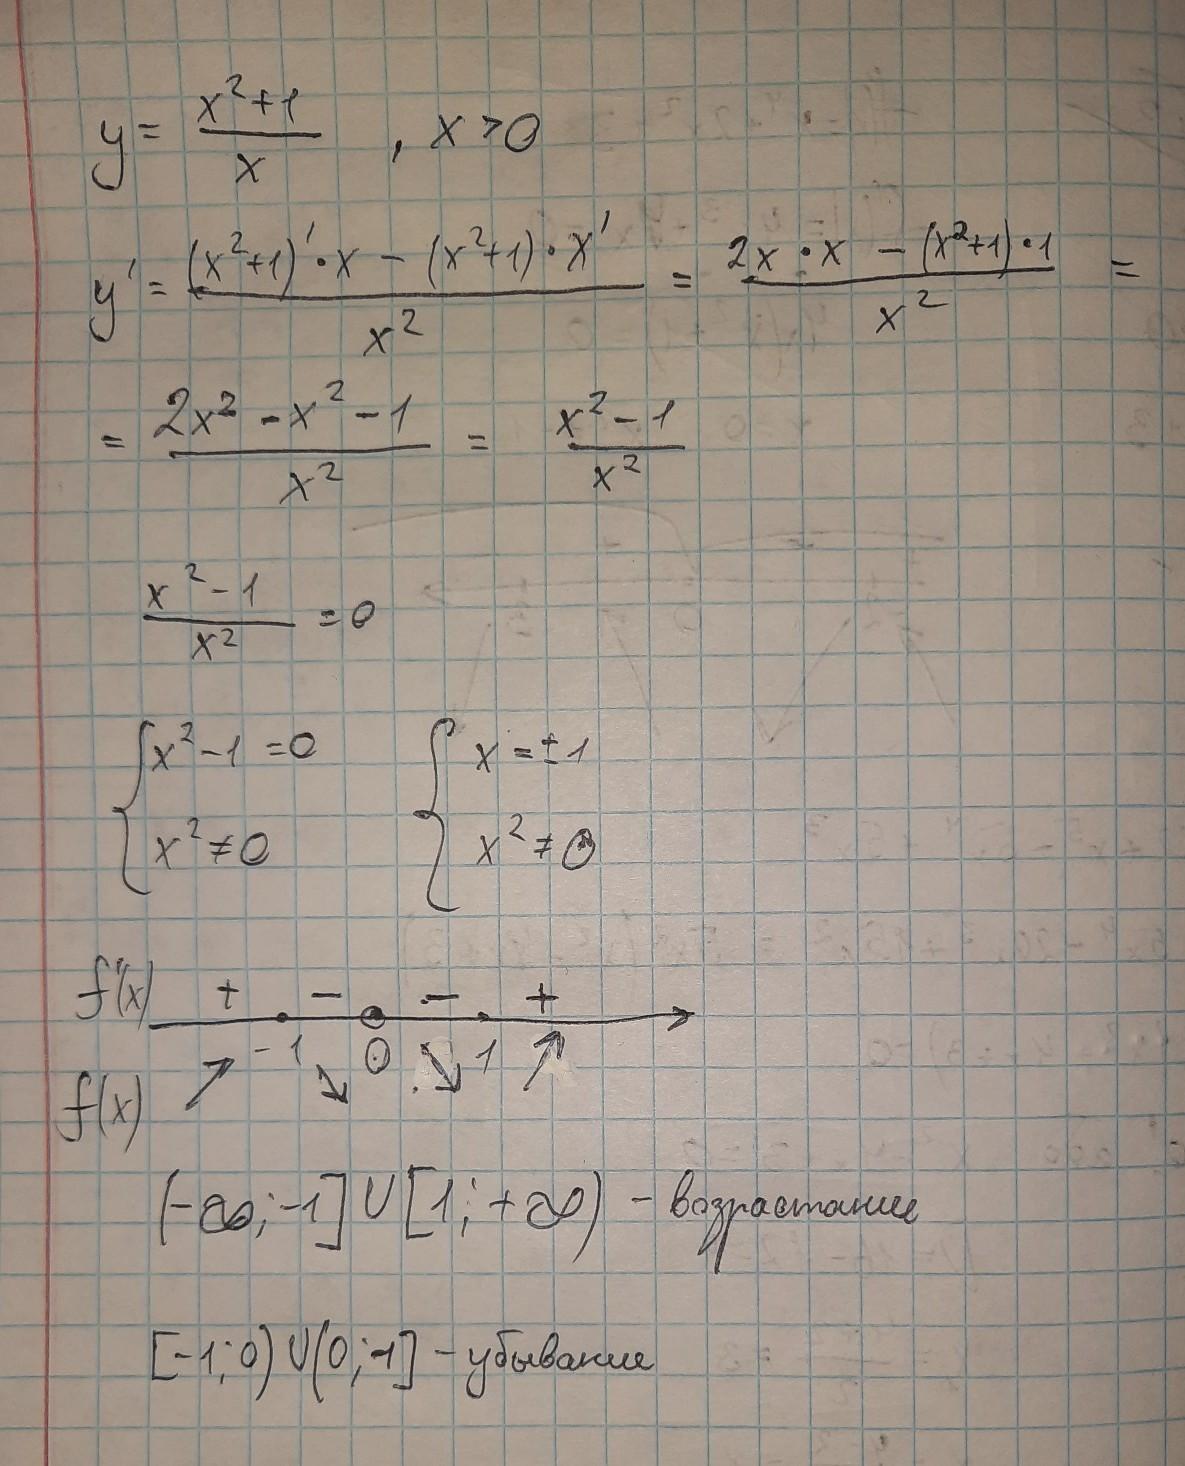 y = (x²+1)/x , x > 0
y' = ((x²+1)'·x − (x²+1)·x')/x² = (2x·x − (x²+1)·1)/x² =
= (2x² − x² − 1)/x² = (x² − 1)/x²
(x² − 1)/x² = 0
{ x² − 1 = 0 { x = ±1
{ x² ≠ 0 { x² ≠ 0
f'(x) + − − +
−1 0 1
f(x) ↗ ↘ ↘ ↗
(−∞; −1] ∪ [1; +∞) − возрастание
[−1; 0) ∪ (0; 1] − убывание